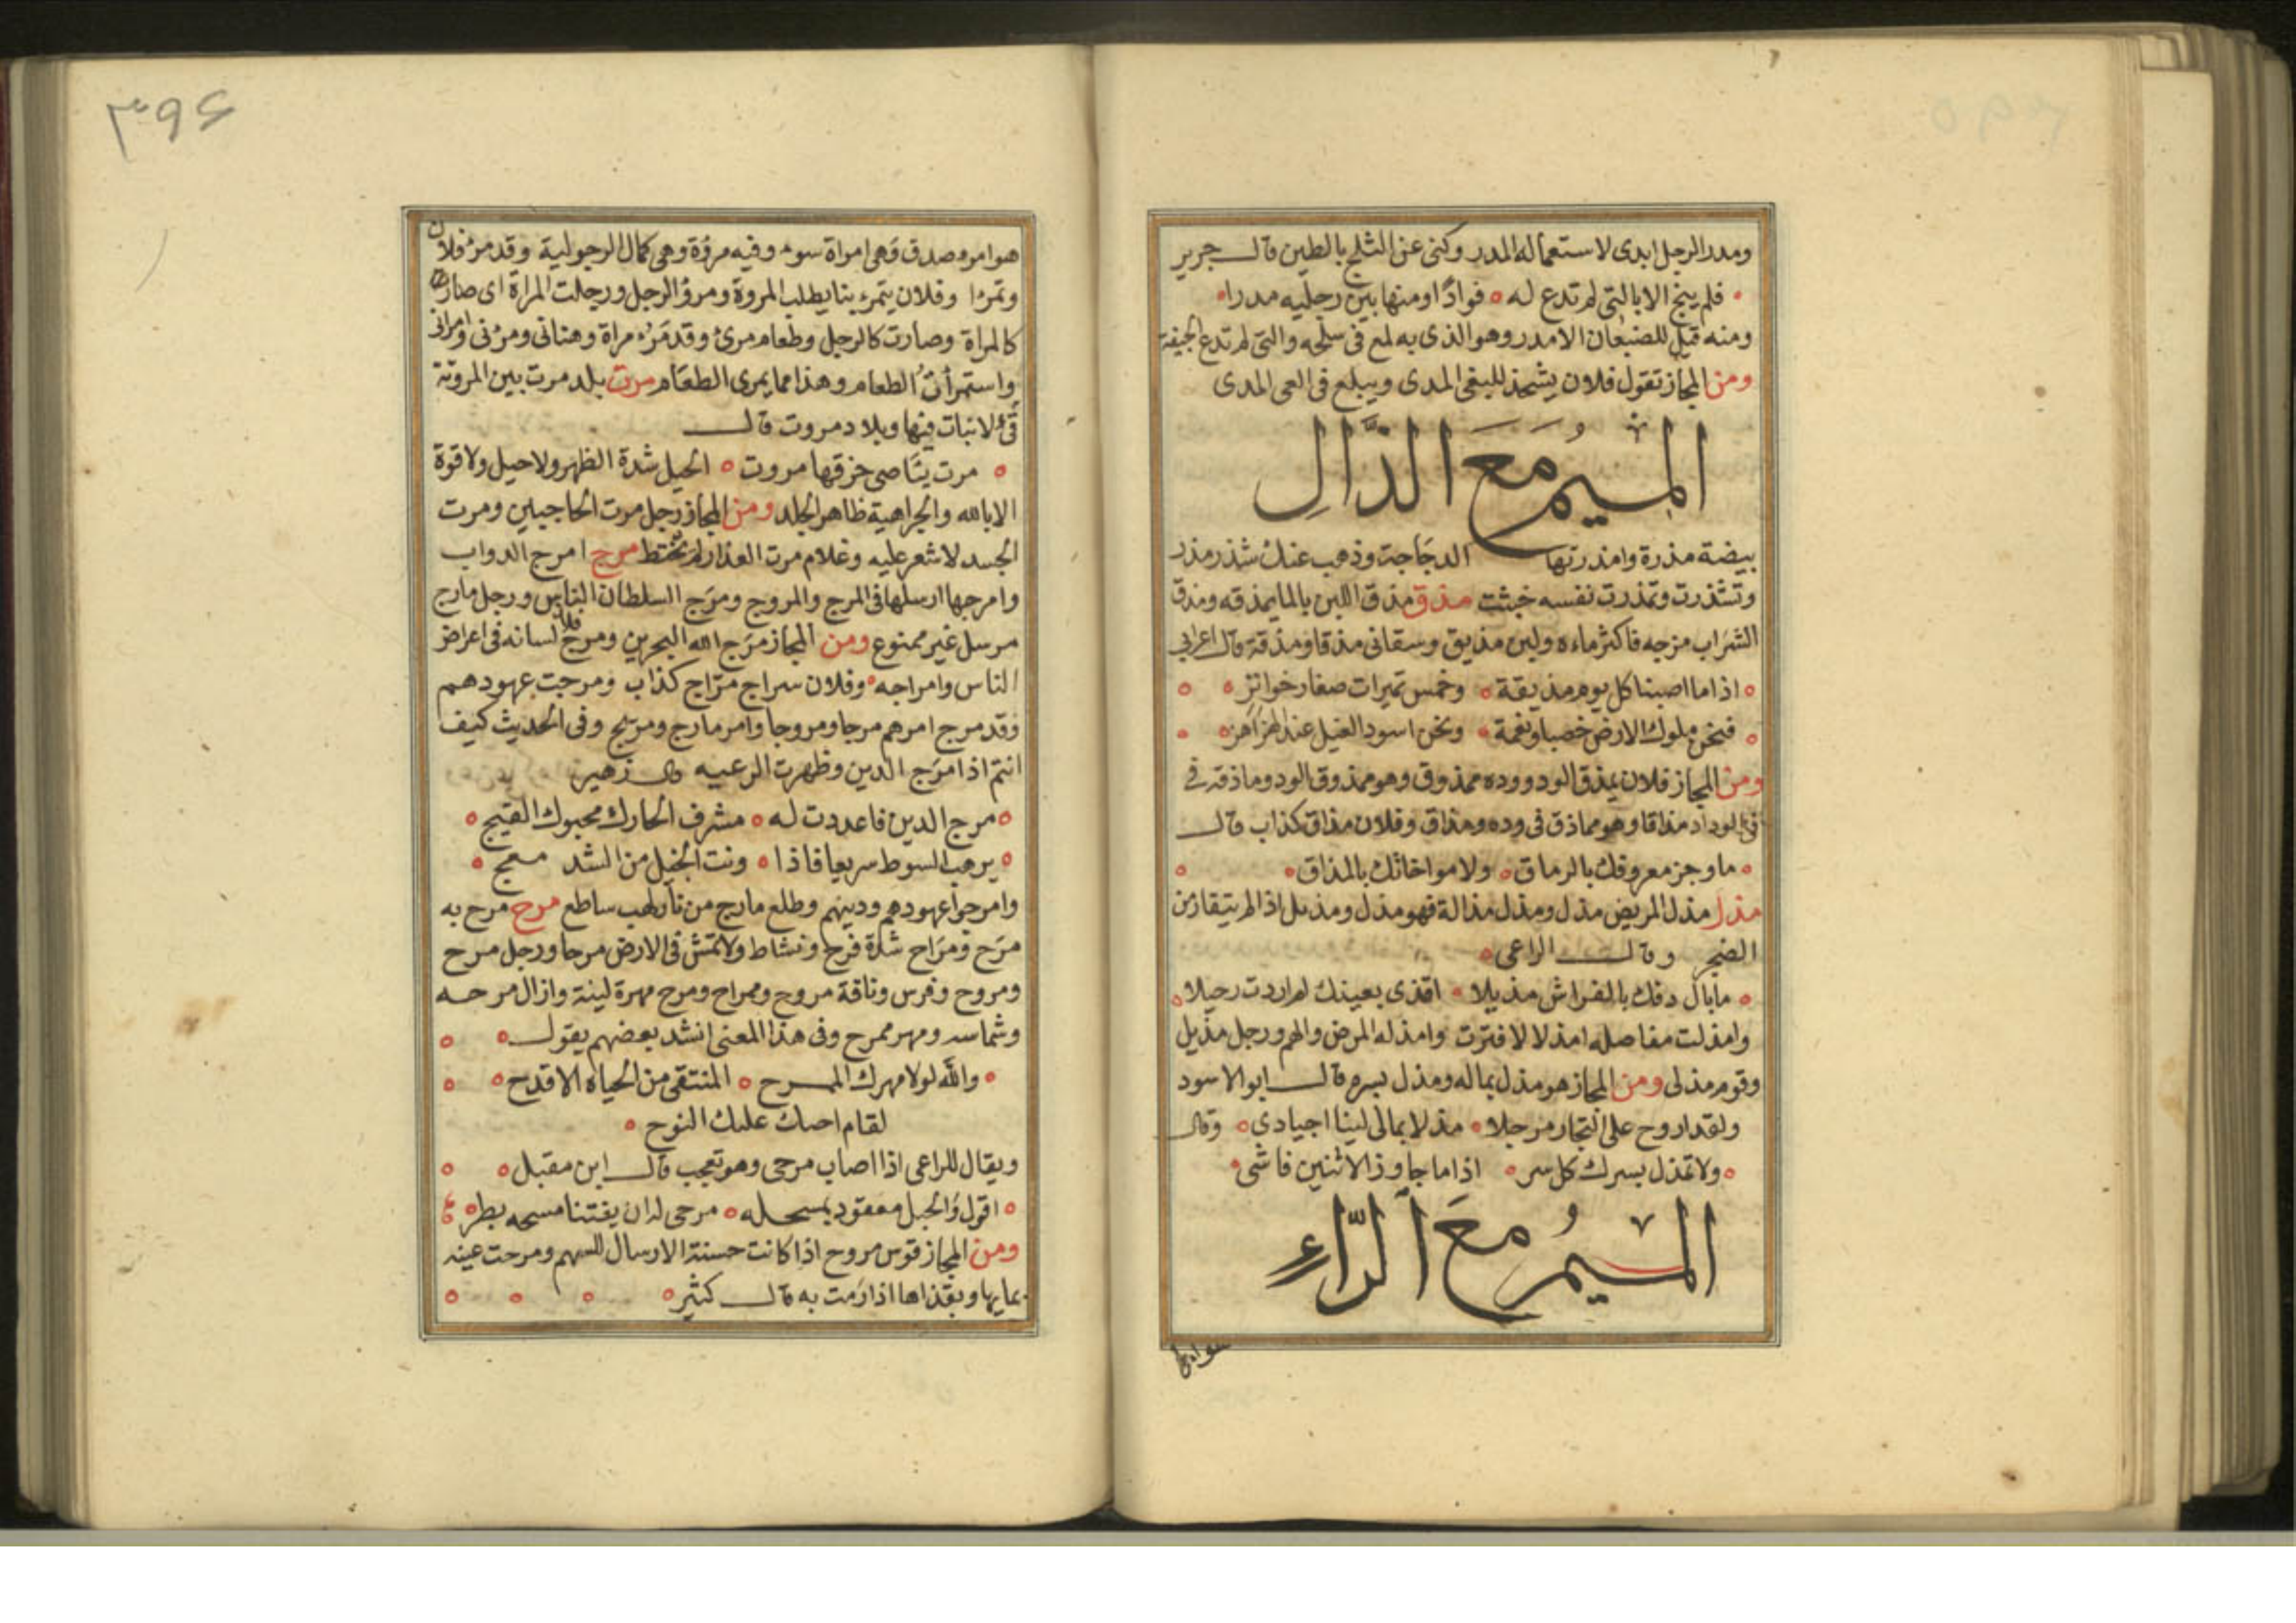 ومدر الرجل ابدى لاستعماله المدر وكنى عن الثلج بالطين قال جرير
فلم ينج الا بالتى لم تدع له فوادا ومنها بين رجليه مدرا
ومنه قيل للضبعان الامدر وهو الذى به لمع فى سلحه والتى لم تدع الجيفة
ومن المجاز تقول فلان يشحذ للبغى المدى ويبلغ فى العى المدى
الميم مع الذال
بيضة مذرة وامذرتها الدجاجة وذهب عنك شذر مذر
وتشذرت وتمذرت نفسه خبثت مذق مذق اللبن بالما يمذقه ومذق
الشراب مزجه فاكثر ماءه ولبن مذيق وسقانى مذقا ومذقة قال اعرابى
اذا ما اصبنا كل يوم مذيقة وخمس تميرات صغار خوانز
فنحن ملوك الارض خصبا ونعمة ونحن اسود الغيل عند الهزاهز
ومن المجاز فلان يمذق الود ووده ممذوق وهو ممذوق الود وماذقه فى
فى الوداد مذاقا وهو مماذق فى وده ومذاق وفلان مذاق كذاب قال
ما وجز معروفك بالرماق ولا مواخاتك بالمذاق
مذل مذل المريض مذل ومذل مذالة فهو مذل ومذيل اذا لم يتقار من
الضجر وقال الراعى
ما بال دفك بالفراش مذيلا اقذى بعينك ام اردت رحيلا
وامذلت مفاصله امذلالا فترت وامذله المرض والهم ورجل مذيل
وقوم مذلى ومن المجاز هو مذل بماله ومذل بسره قال ابو الاسود
ولقد اروح على التجار مرجلا مذلا بمالى لينا اجيادى وقال
ولا تمذل بسرك كل سر اذا ما جاوز الاثنين فاشى
الميم مع الراء
هو امرء
٣٩۶
هو امرء صدق وهى امراة سوء وفيه مروة وهى كمال الرجولية وقد مرؤ فلان
وتمرا وفلان يتمرء بنا يطلب المروة ومرؤ الرجل ورجلت المراة اى صار
كالمراة وصارت كالرجل وطعام مرئ وقد مرء مراة وهنانى ومرنى وامرانى
واستمرات الطعام وهذا مما يمرى الطعام مرت بلد مرت بين المروتة
لا نبات فيها وبلاد مروت قال
مرت يناصى خرقها مروت الحيل شدة الظهر ولا حيل ولا قوة
الا بالله والجراهية ظاهر الجلد ومن المجاز رجل مرت الحاجبين ومرت
الجسد لا شعر عليه وغلام مرت العذار لم يختط مرج امرج الدواب
وامرجها ارسلها فى المرج والمروج ومرج السلطان الناس ورجل مارج
مرسل غير ممنوع ومن المجاز مرج الله البحرين ومرج فلان لسانه فى اعراض
الناس وامراجه وفلان سراج مراج كذاب ومرجت عهودهم
وقد مرج امرهم مرجا ومروجا وامر مارج ومريج وفى الحديث كيف
انتم اذا مرج الدين وظهرت الرعيه قال زهير
مرج الدين فاعددت له مشرف الحارك محبوك القيج
يرهب السوط سريعا فاذا ونت الخيل من الشد معج
وامرجوا عهودهم ودينهم وطلع مارج من نار لهب ساطع مرح مرح به
مرح ومراح شدة فرح ونشاط ولا تمش فى الارض مرحا ورجل مرح
ومروح وفرس وناقة مروح وممراح ومرح مهرة لينة وازال مرحه
وشماسه ومهر ممرح وفى هذا المعنى انشد بعضهم يقول
والله لولا مهرك الممرح المنتقى من الحياه الاقدح
لقام احبك عليك النوح
ويقال للراعى اذا اصاب مرحى وهو تعجب قال ابن مقبل
اقول والحبل معقود بمسحله مرحى له ان يفتنا مسحه بطر
ومن المجاز قوس مروح اذا كانت حسنة الارسال للسهم ومرحت عينه
بمايها وبقذاها اذا رمت به قال كثير